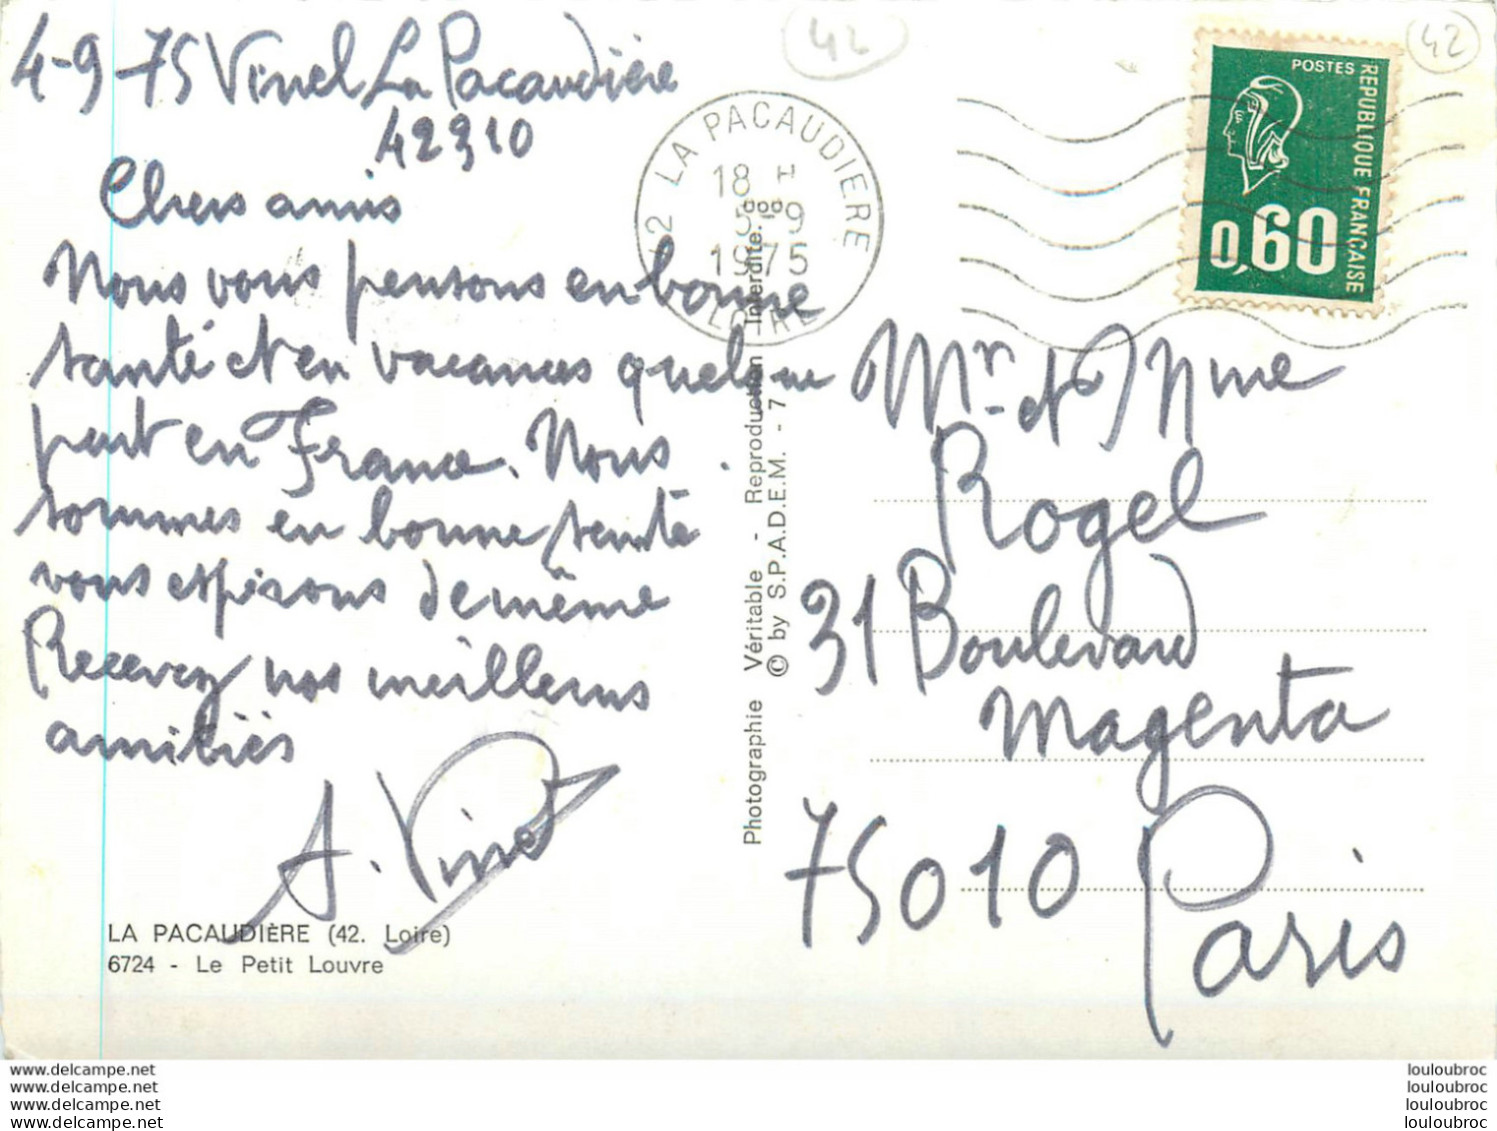 4-9-75 Vinel La Pacaudière
42310
Chers amis
Nous vous pensons en bonne
santé et en vacances quelque
part en France. Nous
sommes en bonne santé
vous espérons de même
Recevez nos meilleurs
amitiés
A. Vinel
LA PACAUDIÈRE (42. Loire)
6724 - Le Petit Louvre
Photographie Véritable - Reproduction Interdite.
© by S.P.A.D.E.M. - 7
42 LA PACAUDIERE
18 H
5-9
1975
LOIRE
42
42
POSTES
REPUBLIQUE FRANÇAISE
0,60
Mr et Mme
Rogel
31 Boulevard
Magenta
75010 Paris
www.delcampe.net
www.delcampe.net
www.delcampe.net
www.delcampe.net
louloubroc
louloubroc
louloubroc
louloubroc